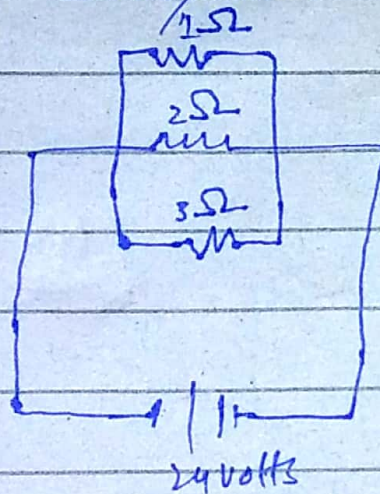 1Ω
2Ω
3Ω
24 volts